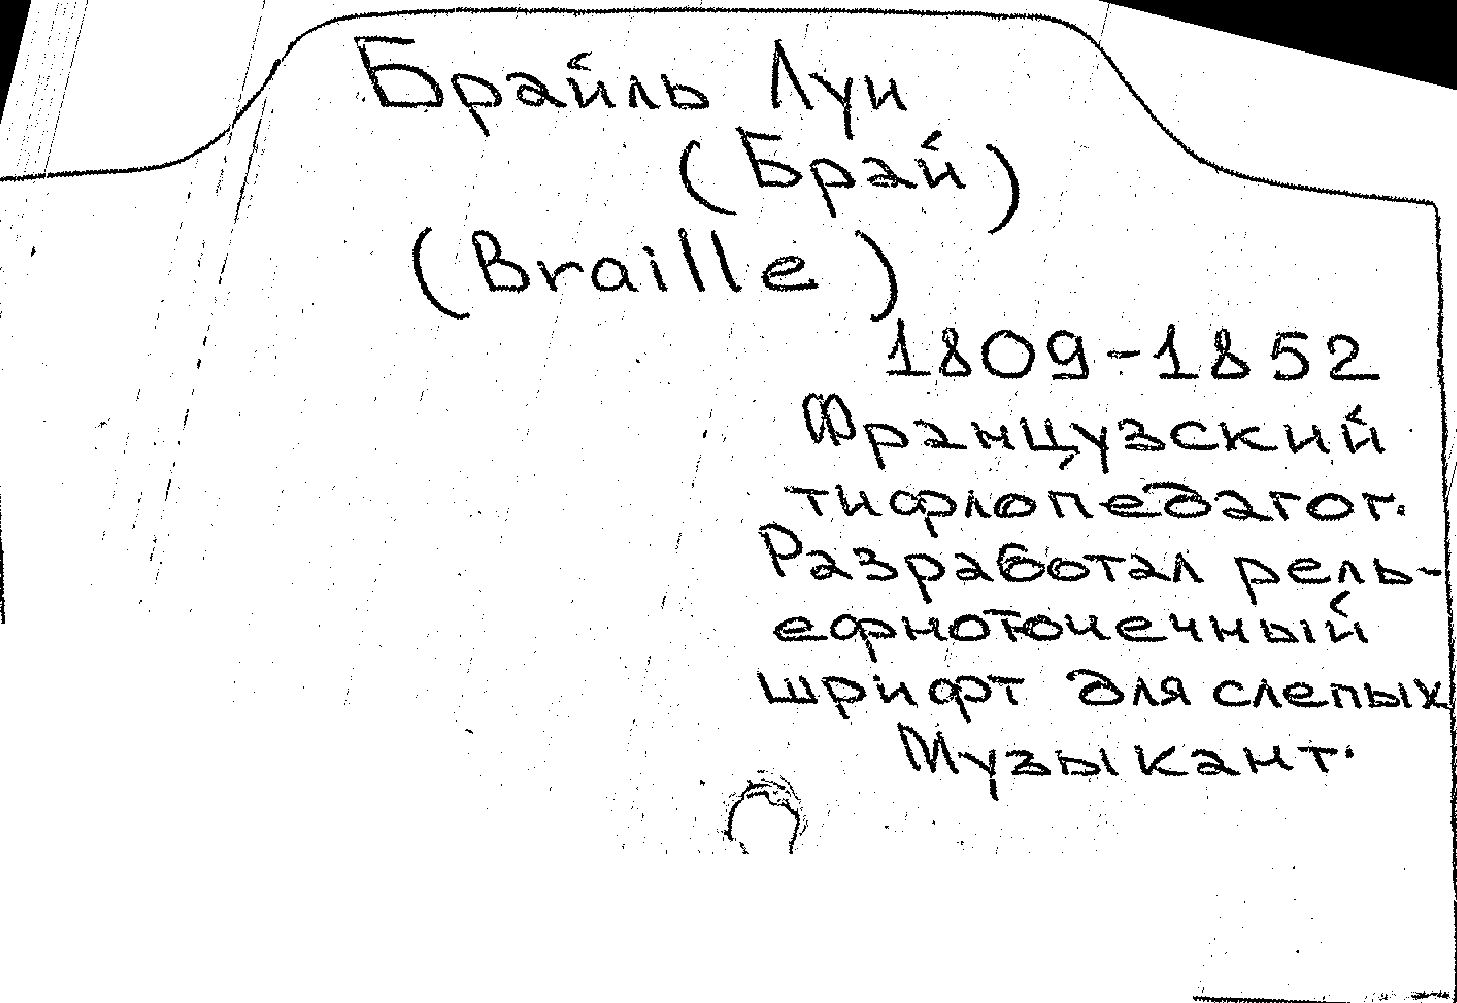 Брайль Луи
(Брай)
(Braille)
1809-1852
Французский
тифлопедагог.
Разработал рель-
ефноточечный
шрифт для слепых
Музыкант.